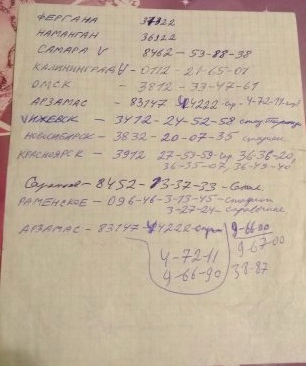 ФЕРГАНА 37322
НАМАНГАН 36922
САМАРА V 8462-53-88-38
КАЛИНИНГРАД V-0112-21-65-01
ОМСК - 3812-33-47-61
АРЗАМАС - 83147 44222 4-72-11
VИЖЕВСК - 3412-24-52-58
НОВОСИБИРСК - 3832-20-07-35
КРАСНОЯРСК - 3912 27-53-59 36-38-20,
36-35-07, 36-49-40
Саратов - 8452-73-37-33
РАМЕНСКОЕ - 096-46-3-13-45-стадион
3-27-24-справочная
АРЗАМАС - 83147-44222 9-66-00
9-67-00
4-72-11
9-66-90 38-87